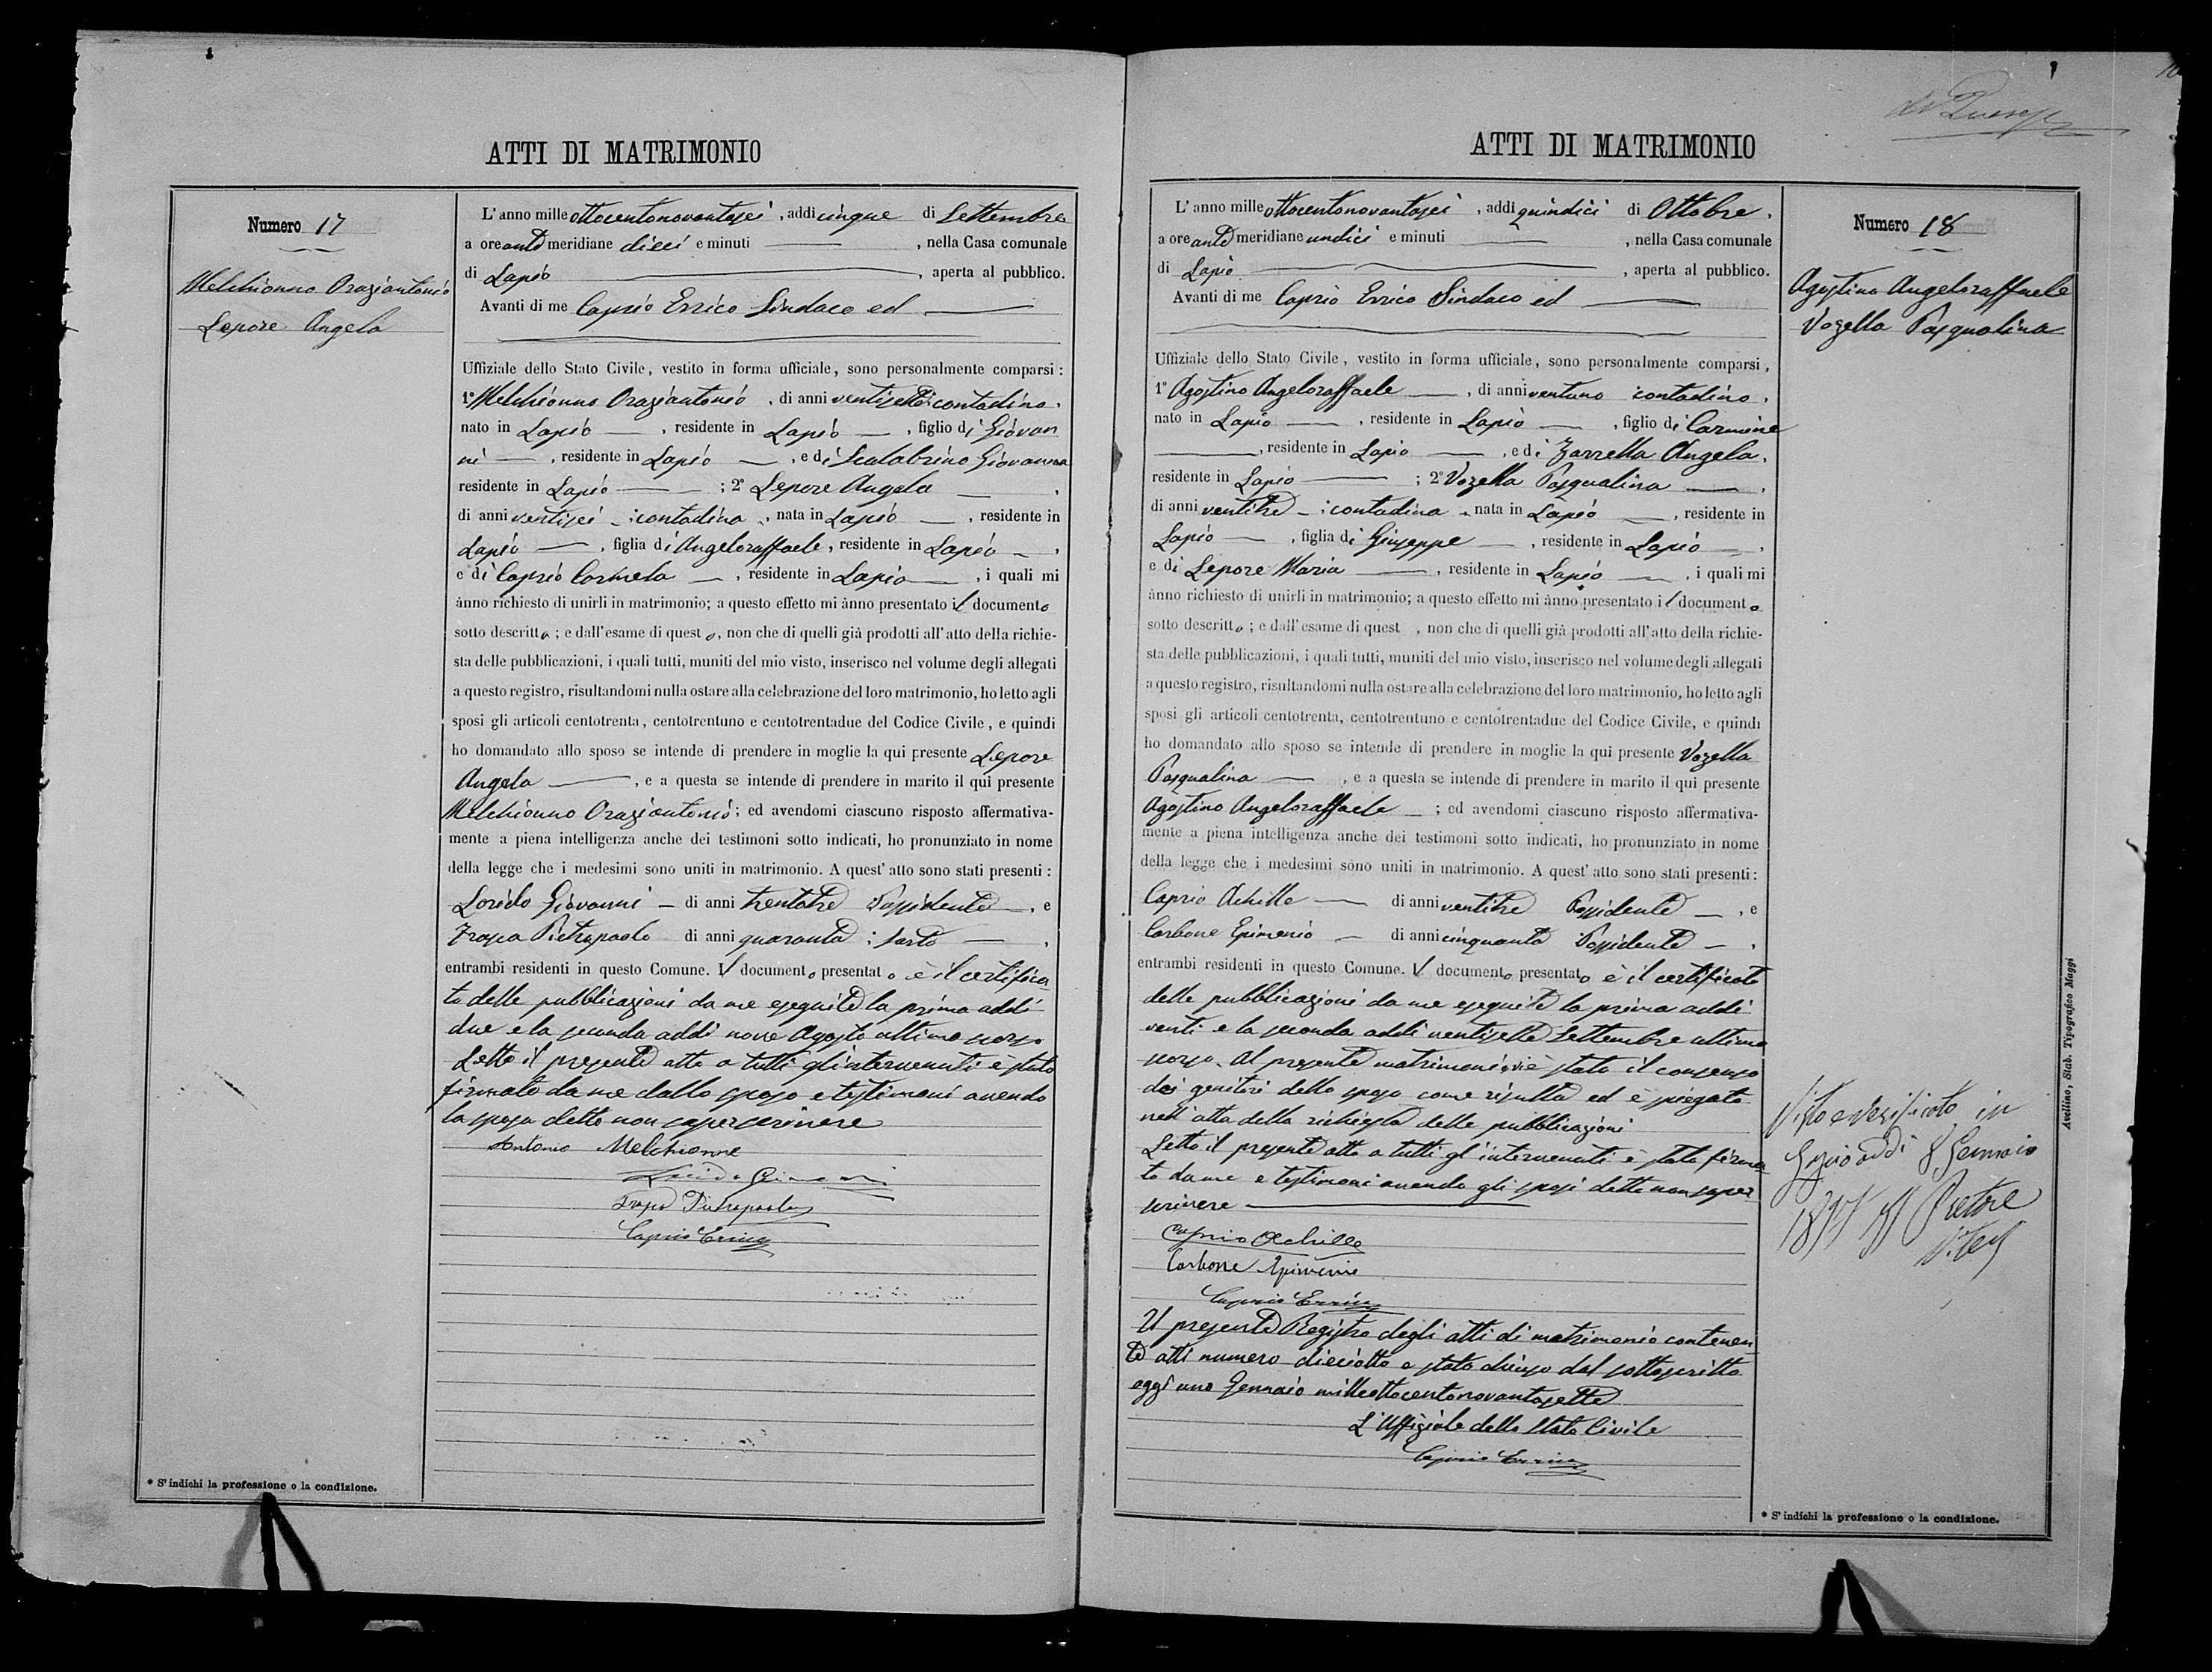 ATTI DI MATRIMONIO
Numero 17
Melchionno Oraziantonio
Lepore Angela
L'anno mille ottocentonovantasei, addi cinque di Settembre
a ore ante meridiane dieci e minuti, nella Casa comunale
di Lapio, aperta al pubblico.
Avanti di me Caprio Errico Sindaco ed
Uffiziale dello Stato Civile, vestito in forma ufficiale, sono personalmente comparsi:
1° Melchionno Oraziantonio, di anni ventisette contadino,
nato in Lapio, residente in Lapio, figlio di Giovan
ni, residente in Lapio, e di Scalabrino Giovanna
residente in Lapio; 2° Lepore Angela,
di anni ventisei contadina, nata in Lapio, residente in
Lapio, figlia di Angeloraffaele, residente in Lapio,
e di Caprio Carmela, residente in Lapio, i quali mi
ànno richiesto di unirli in matrimonio; a questo effetto mi ànno presentato il documento
sotto descritto; e dall'esame di questo, non che di quelli già prodotti all'atto della richie-
sta delle pubblicazioni, i quali tutti, muniti del mio visto, inserisco nel volume degli allegati
a questo registro, risultandomi nulla ostare alla celebrazione del loro matrimonio, ho letto agli
sposi gli articoli centotrenta, centotrentuno e centotrentadue del Codice Civile, e quindi
ho domandato allo sposo se intende di prendere in moglie la qui presente Lepore
Angela, e a questa se intende di prendere in marito il qui presente
Melchionno Oraziantonio; ed avendomi ciascuno risposto affermativa-
mente a piena intelligenza anche dei testimoni sotto indicati, ho pronunziato in nome
della legge che i medesimi sono uniti in matrimonio. A quest'atto sono stati presenti:
Lorido Giovanni di anni trentatre Possidente, e
Trapa Pietropaolo di anni quaranta Sarto,
entrambi residenti in questo Comune. Il documento presentato è il certifica
to delle pubblicazioni da me eseguite la prima addi
due e la seconda addi nove Agosto ultimo scorso
Letto il presente atto a tutti gl'intervenuti è stato
firmato da me dallo sposo e testimoni avendo
la sposa detto non saper scrivere
Antonio Melchionne
Lorido Giovanni
Trapa Pietropaolo
Caprio Errico
* S'indichi la professione o la condizione.
ATTI DI MATRIMONIO
Numero 18
Agostino Angeloraffaele
Vozella Pasqualina
L'anno mille ottocentonovantasei, addi quindici di Ottobre,
a ore ante meridiane undici e minuti, nella Casa comunale
di Lapio, aperta al pubblico.
Avanti di me Caprio Errico Sindaco ed
Uffiziale dello Stato Civile, vestito in forma ufficiale, sono personalmente comparsi,
1° Agostino Angeloraffaele, di anni ventuno contadino,
nato in Lapio, residente in Lapio, figlio di Carmine
, residente in Lapio, e di Zarrella Angela,
residente in Lapio; 2° Vozella Pasqualina,
di anni ventitre contadina, nata in Lapio, residente in
Lapio, figlia di Giuseppe, residente in Lapio,
e di Lepore Maria, residente in Lapio, i quali mi
ànno richiesto di unirli in matrimonio; a questo effetto mi ànno presentato il documento
sotto descritto; e dall'esame di quest, non che di quelli già prodotti all'atto della richie-
sta delle pubblicazioni, i quali tutti, muniti del mio visto, inserisco nel volume degli allegati
a questo registro, risultandomi nulla ostare alla celebrazione del loro matrimonio, ho letto agli
sposi gli articoli centotrenta, centotrentuno e centotrentadue del Codice Civile, e quindi
ho domandato allo sposo se intende di prendere in moglie la qui presente Vozella
Pasqualina, e a questa se intende di prendere in marito il qui presente
Agostino Angeloraffaele; ed avendomi ciascuno risposto affermativa-
mente a piena intelligenza anche dei testimoni sotto indicati, ho pronunziato in nome
della legge che i medesimi sono uniti in matrimonio. A quest'atto sono stati presenti:
Caprio Achille di anni ventitre Possidente, e
Carbone Epimenio di anni cinquanta Possidente,
entrambi residenti in questo Comune. Il documento presentato è il certificato
delle pubblicazioni da me eseguite la prima addi
venti e la seconda addi ventisette Settembre ultimo
scorso. Al presente matrimonio vi è stato il consenso
dei genitori dello sposo come risulta ed è spiegato
nell'atto della richiesta delle pubblicazioni
Letto il presente atto a tutti gl'intervenuti è stato firma
to da me e testimoni avendo gli sposi detto non saper
scrivere
Caprio Achille
Carbone Epimenio
Caprio Errico
Il presente Registro degli atti di matrimonio contenen
te atti numero dieciotto è stato chiuso dal sottoscritto
oggi uno Gennaio milleottocentonovantasette
L'Uffiziale dello Stato Civile
Caprio Errico
Visto e verificato in
Lapio addi 8 Gennaio
1897 Il Pretore
* S'indichi la professione o la condizione.
Avellino, Stab. Tipografico Maggi